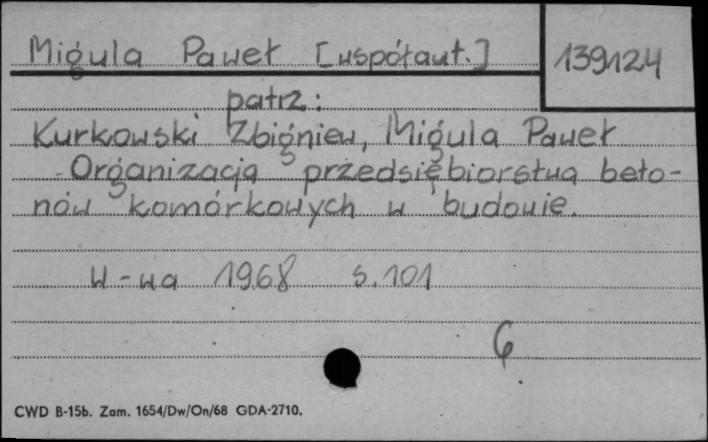 Miguła Paweł [współaut.]
139124
patrz:
Kurkowski Zbigniew, Miguła Paweł
Organizacja przedsiębiorstwa beto-
nów komórkowych w budowie.
W-wa 1968 s.101
6
CWD B-15b. Zam. 1654/Dw/On/68 GDA-2710.